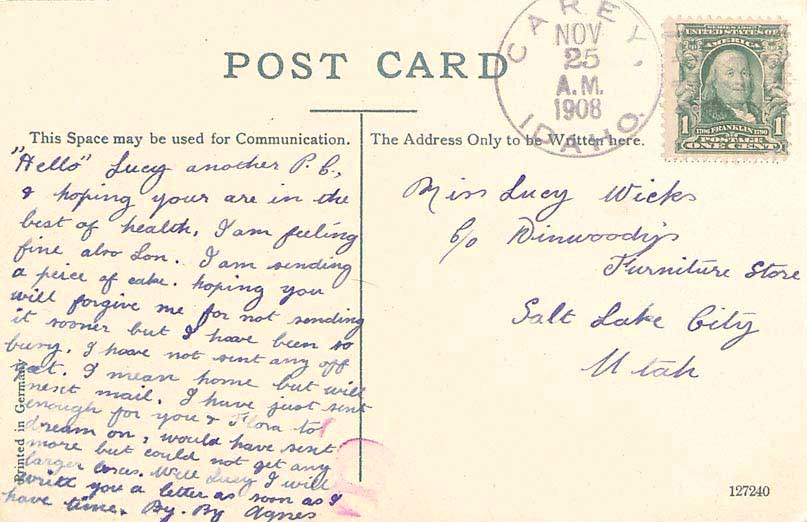 POST CARD
CAREY,
NOV
25
A.M.
1908
IDAHO.
SERIES 1902
UNITED STATES OF
AMERICA
1
1706 FRANKLIN 1790
1
POSTAGE
ONE CENT
This Space may be used for Communication.
"Hello" Lucy another P.C.,
& hoping your are in the
best of health, I am feeling
fine also Lon. I am sending
a peice of cake. hoping you
will forgive me for not sending
it sooner but I have been so
busy. I have not sent any off
yet. I mean home but will
next mail. I have just sent
enough for you & Flora to
dream on, would have sent
more but could not get any
larger boxes. Well Lucy I will
write you a letter as soon as I
have time. By. By Agnes
The Address Only to be Written here.
Miss Lucy Wicks
c/o Dinwoodys
Furniture Store
Salt Lake City
Utah
Printed in Germany
127240